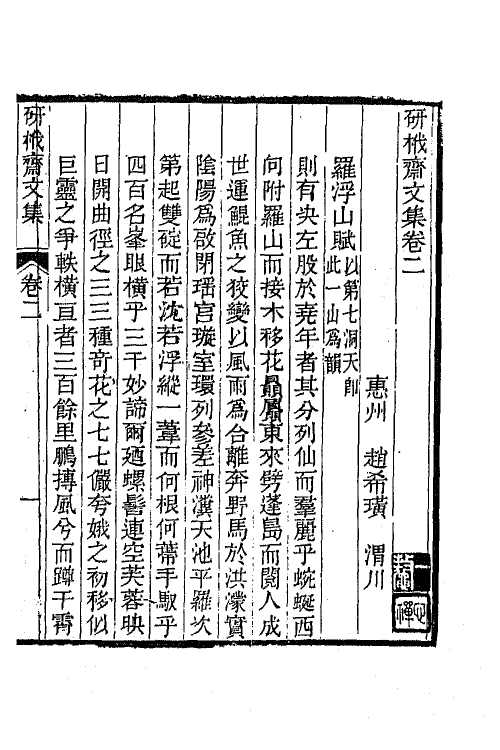 研栰齋文集卷二
惠州 趙希璜 渭川
羅浮山賦以第七洞天即此一山為韻
則有夬左股於堯年者其分列仙而羣麗乎蜿蜒西
向附羅山而接木移花贔屭東來劈蓬島而閱人成
世運鯤魚之狡變以風雨為合離奔野馬於洪濛實
陰陽為啟閉瑶宫璇室環列參差神溟天池平羅次
第起雙碇而若沈若浮縱一葦而何根何蔕手馭乎
四百名峯眼橫乎三千妙諦爾廼螺髻連空芙蓉映
日開曲徑之三三種奇花之七七儼夸娥之初移似
巨靈之爭軼橫亘者三百餘里鵬摶風兮而蹲干霄
研栰齋文集
卷二
一